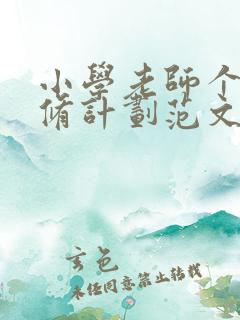 小學老師个
脩計劃范文
玄色
未经同意禁止转载